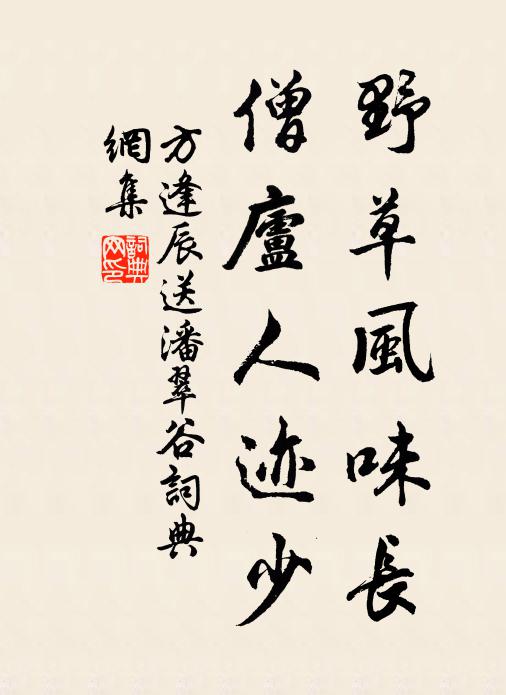 野草風味長
僧廬人迹少
方逢辰送潘翠谷詞典
網集
詞典
网印